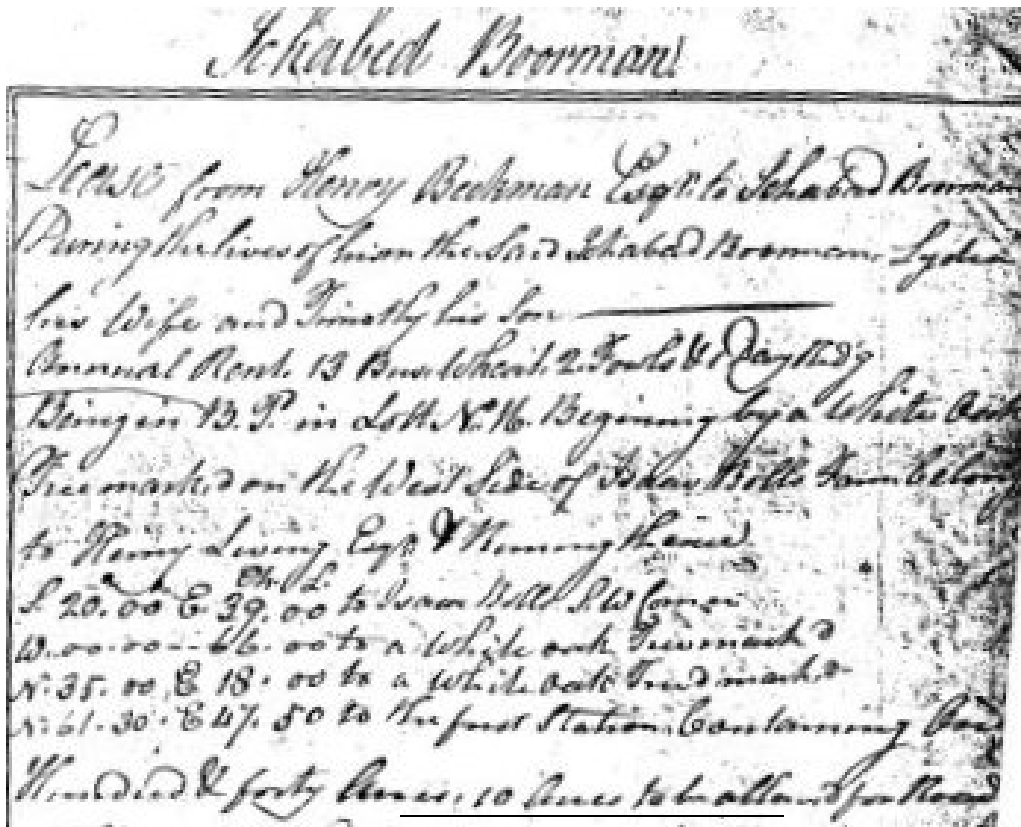 Ichabod Boorman
Lease from Henry Beekman Esqr. to Ichabad Boorman
During the lives of him the Said Ichabad Boorman Lydia
his Wife and Timothy his Son
Annual Rent. 13 Bus. Wheat. 2 Fowls & 1 Day Rid'g
Being in B. P. in Lott N. 16. Beginning by a White Oak
Tree marked on the West Side of Isaac Bolls Farm belong
to Henry Living Esqr. & Running thence
Ch. L.
S. 20. 00 E 39. 00 to Isaac Bolls S. W Corner
W. 00. 00 - 66. 00 to a White oak Tree mark'd
N. 35. 00. E 18. 00 to a White oak Tree mark'd
N. 61. 30. E 47. 50 to the first Station. Containing One
Hundred & forty Acres, 10 Acres to be allowed for Road